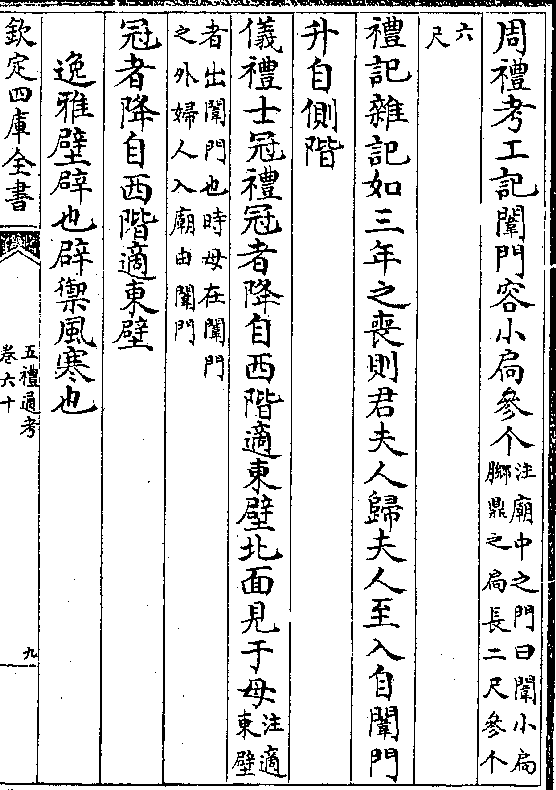 周禮考工記闈門容小扃參个注廟中之門曰闈小扃䣛鼎之扃長二尺參个
六尺
禮記雜記如三年之喪則君夫人歸夫人至入自闈門
升自側階
儀禮士冠禮冠者降自西階適東壁北面見于母注適東壁
者出闈門也時母在闈門之外婦人入廟由闈門
冠者降自西階適東壁
逸雅壁辟也辟禦風寒也
欽定四庫全書
五禮通考
卷六十
九